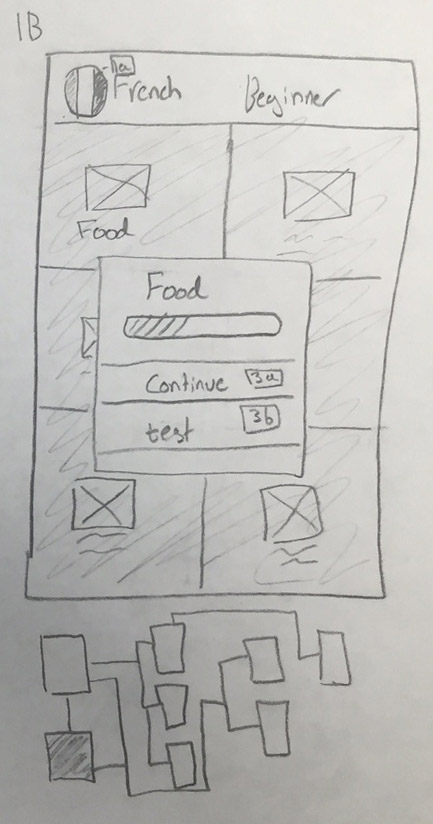 1B
1a
French Beginner
Food
Food
Continue 3a
test 3b